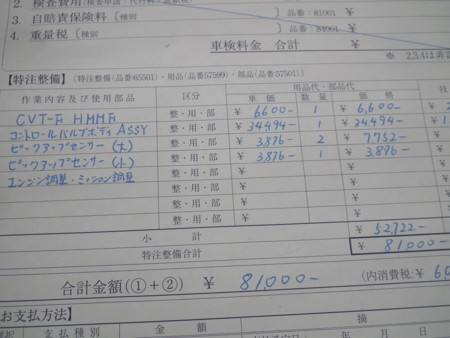 2. 検査費用
3. 自賠責保険料〔種別 〕品番：81001 ¥
4. 重量税〔種別 〕品番：81001 ¥
車検料金 合計 ¥
【特注整備】〔特注整備(品番65501)・用品(品番57599)・部品(品番57501)〕 ※ 2,3,4は非
作業内容及び使用部品 区分 用品代・部品代 技
単価 数量 価格
CVT-F HMMF 整・用・部 ¥ 6600- 1 ¥ 6,600-
コントロールバルブボディ ASSY 整・用・部 ¥ 34494- 1 ¥ 34,494-
ピックアップセンサー (大) 整・用・部 ¥ 3,876- 2 ¥ 7,752-
ピックアップセンサー (小) 整・用・部 ¥ 3,876- 1 ¥ 3,876-
エンジン調整・ミッション調整 整・用・部 ¥ ¥
整・用・部 ¥ ¥
整・用・部 ¥ ¥
整・用・部 ¥ ¥
小計 ¥ 52,722-
特注整備合計 ¥ 81000-
合計金額(①+②) ¥ 81000- (内消費税:¥
【お支払方法】
支払種別 金額 摘
年 月